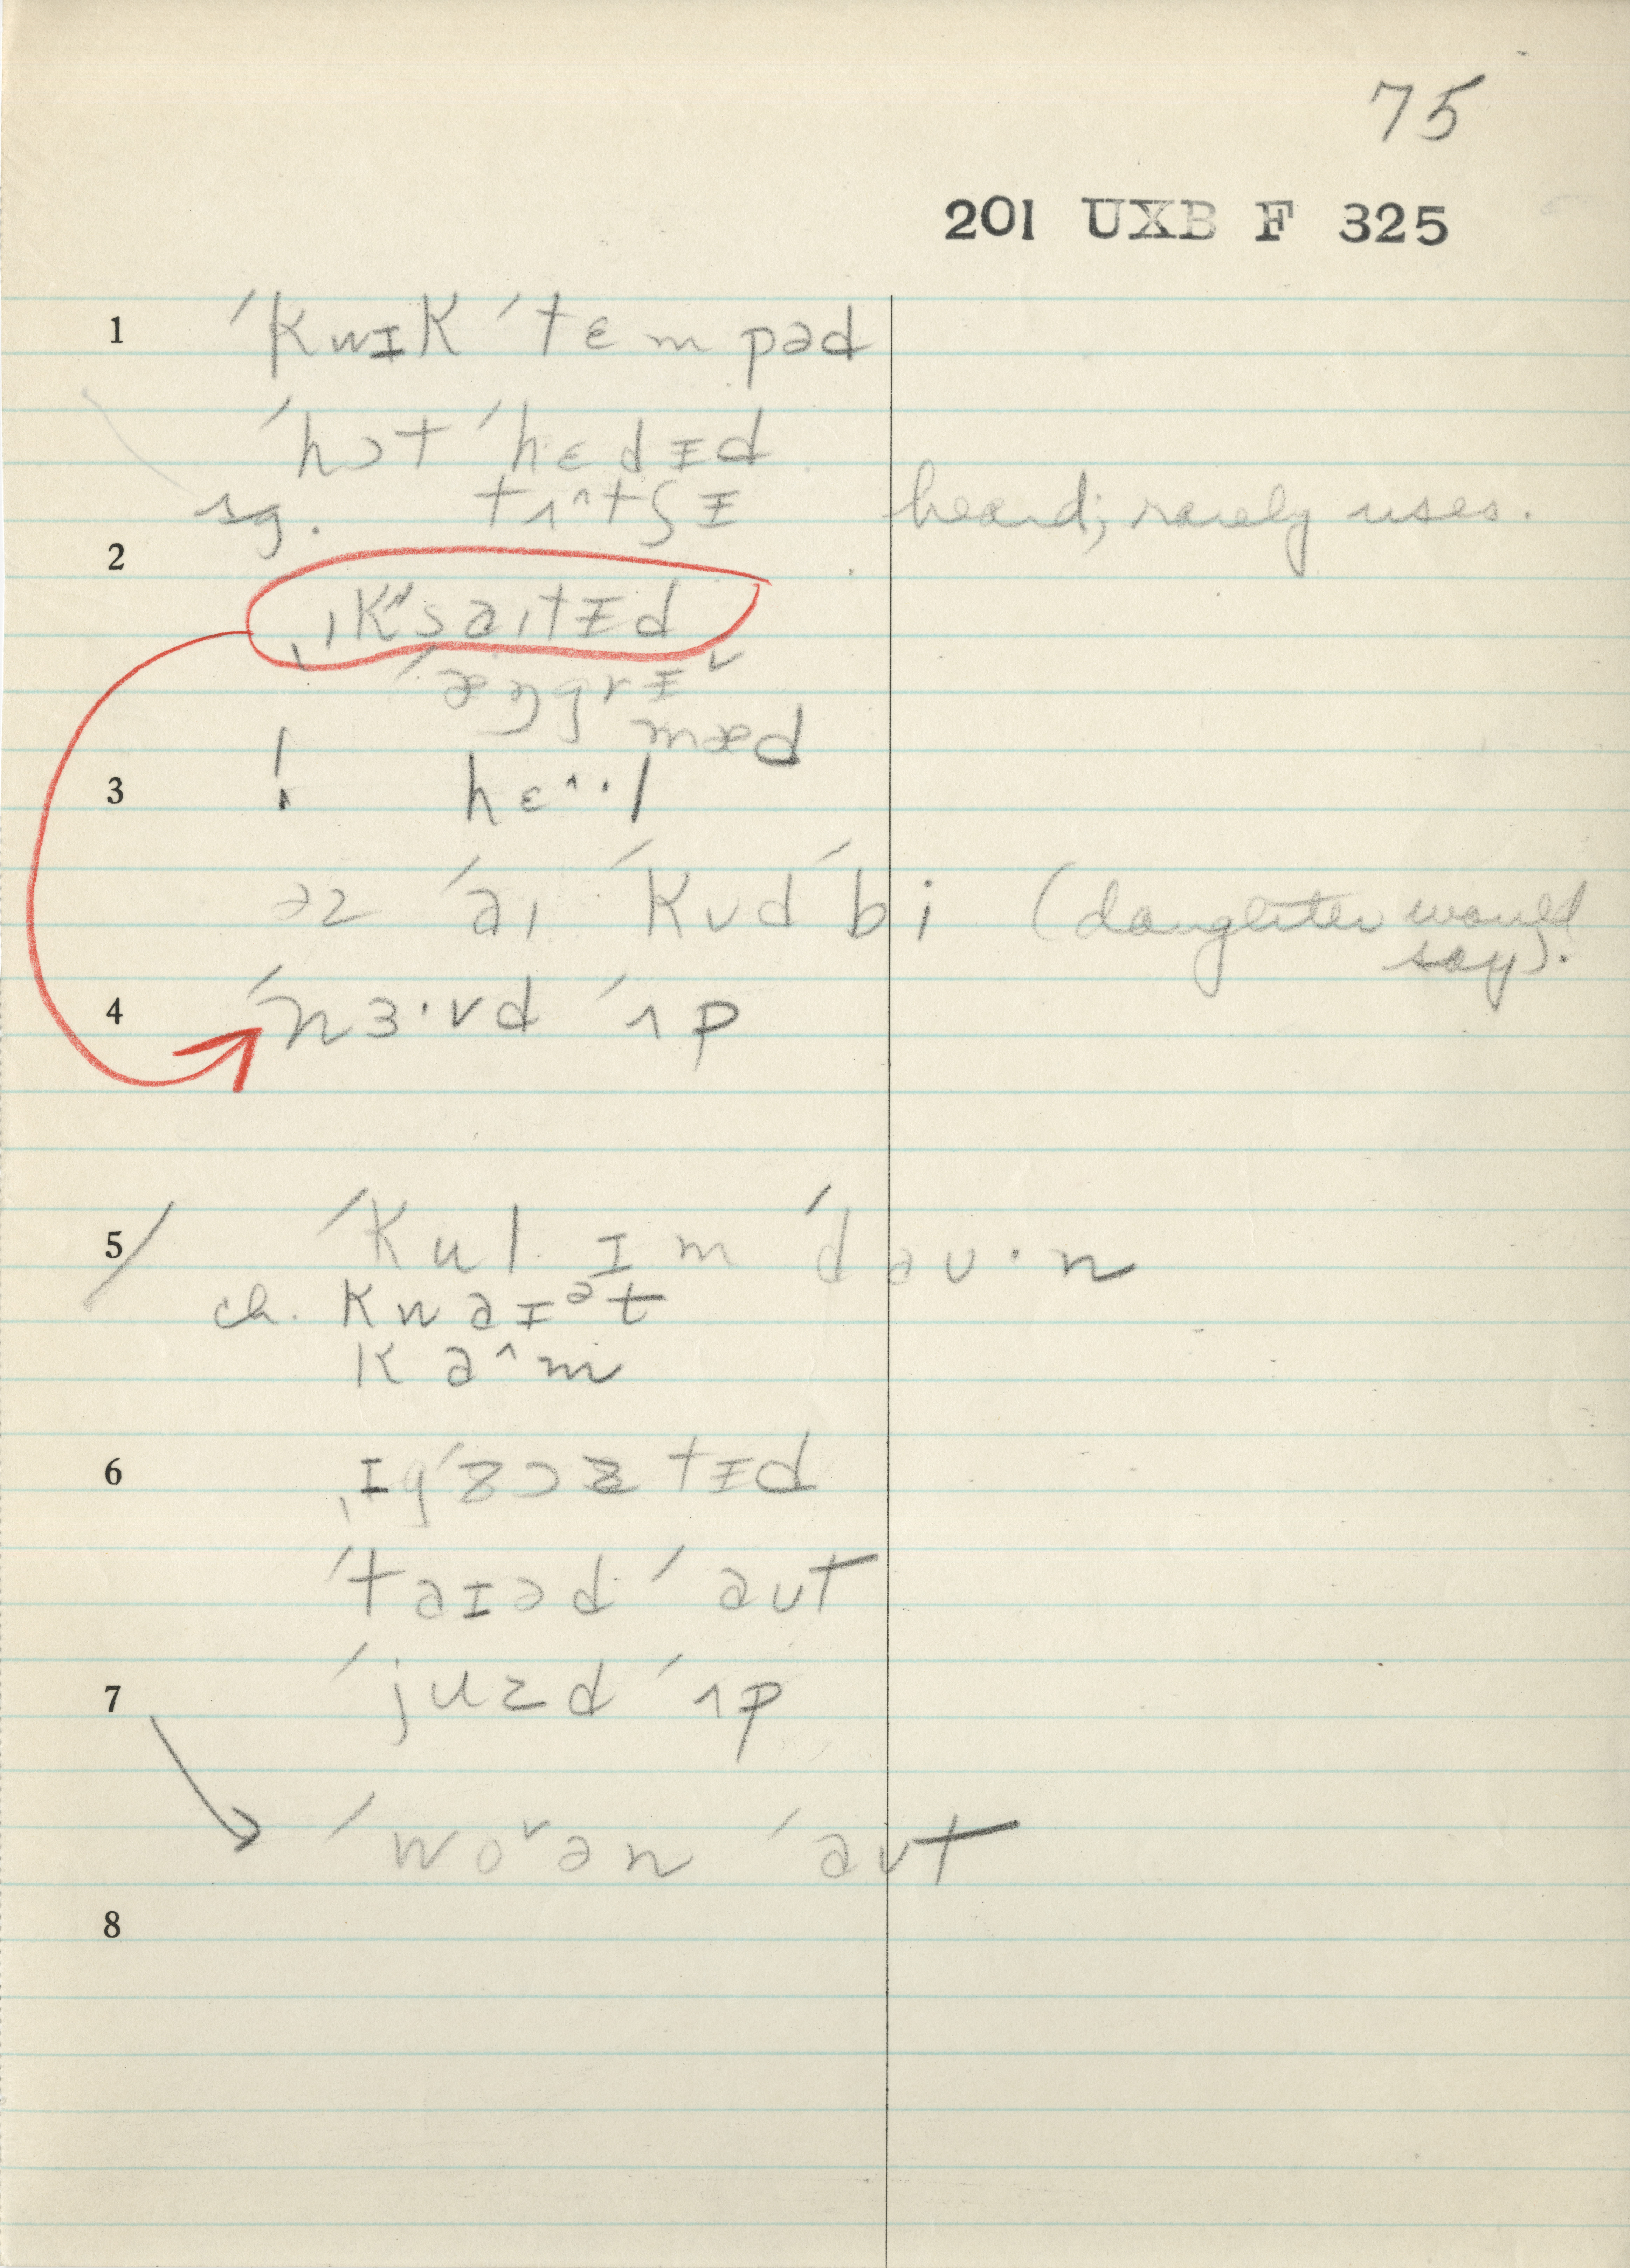 75
201 UXB F 325
1 ˈkwɪk ˈtɛmpəd
ˈhɔt ˈhɛdɪd
sg. tʌ^tʃɪ heard; rarely uses.
2
ˌɪkˈsaɪtɪd
ˈæŋgrɪˇ
mæd
3 ! hɛ^··l
əz ˈaɪ ˈkʊd ˈbi (daughter would
say).
4 ˈnɜ·vd ˈʌp
5 ˈkul ɪm ˈdaʊ·n
ch. kwaɪᵊt
ka^m
6 ˌɪgˈzɔstɪd
ˈtaɪəd ˈaʊt
7 ˈjuzd ˈʌp
ˈwoˇən ˈaʊt
8